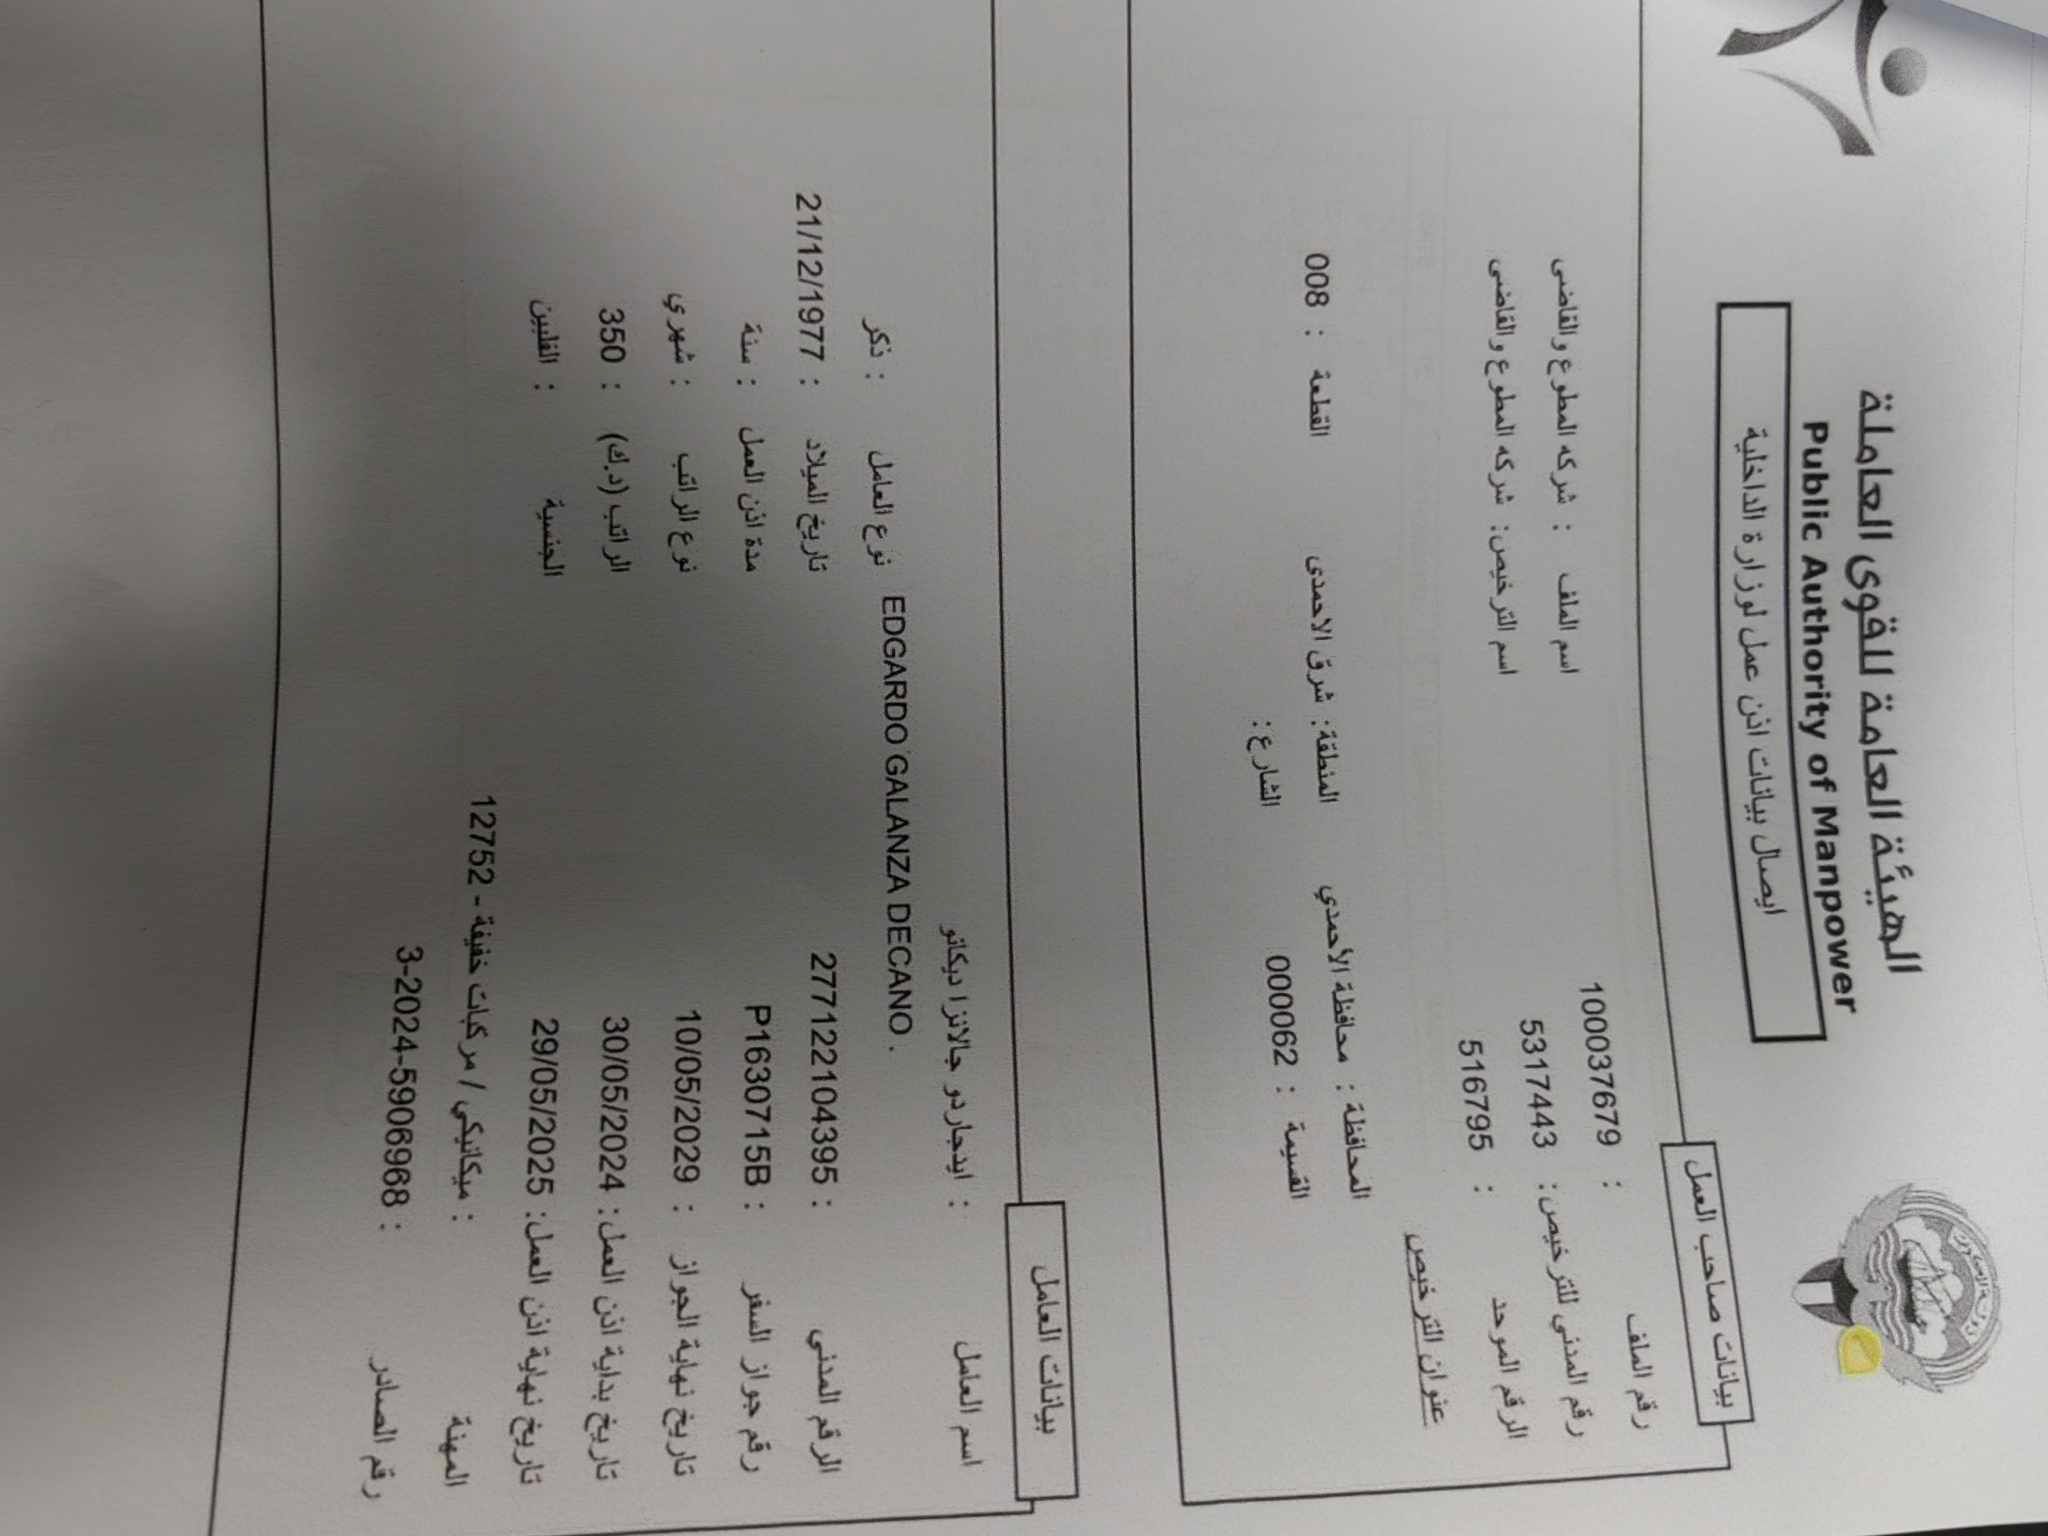 الهيئة العامة للقوى العاملة
Public Authority of Manpower
ايصال بيانات اذن عمل لوزارة الداخلية
بيانات صاحب العمل
رقم الملف : 100037679 اسم الملف : شركه المطوع والقاضى
رقم المدني للترخيص: 5317443 اسم الترخيص: شركه المطوع والقاضى
الرقم الموحد : 516795
عنوان الترخيص
المحافظة : محافظة الأحمدي المنطقة: شرق الاحمدى القطعة : 008
القسيمة : 000062 الشارع :
بيانات العامل
اسم العامل : ايدجاردو جالانزا ديكانو
EDGARDO GALANZA DECANO . نوع العامل : ذكر
الرقم المدني : 277122104395 تاريخ الميلاد : 21/12/1977
رقم جواز السفر : P1630715B مدة اذن العمل : سنة
تاريخ نهاية الجواز : 10/05/2029 نوع الراتب : شهري
تاريخ بداية اذن العمل: 30/05/2024 الراتب (د.ك) : 350
تاريخ نهاية اذن العمل: 29/05/2025 الجنسية : الفلبين
المهنة : ميكانيكي / مركبات خفيفة - 12752
رقم الصادر : 3-2024-5906968